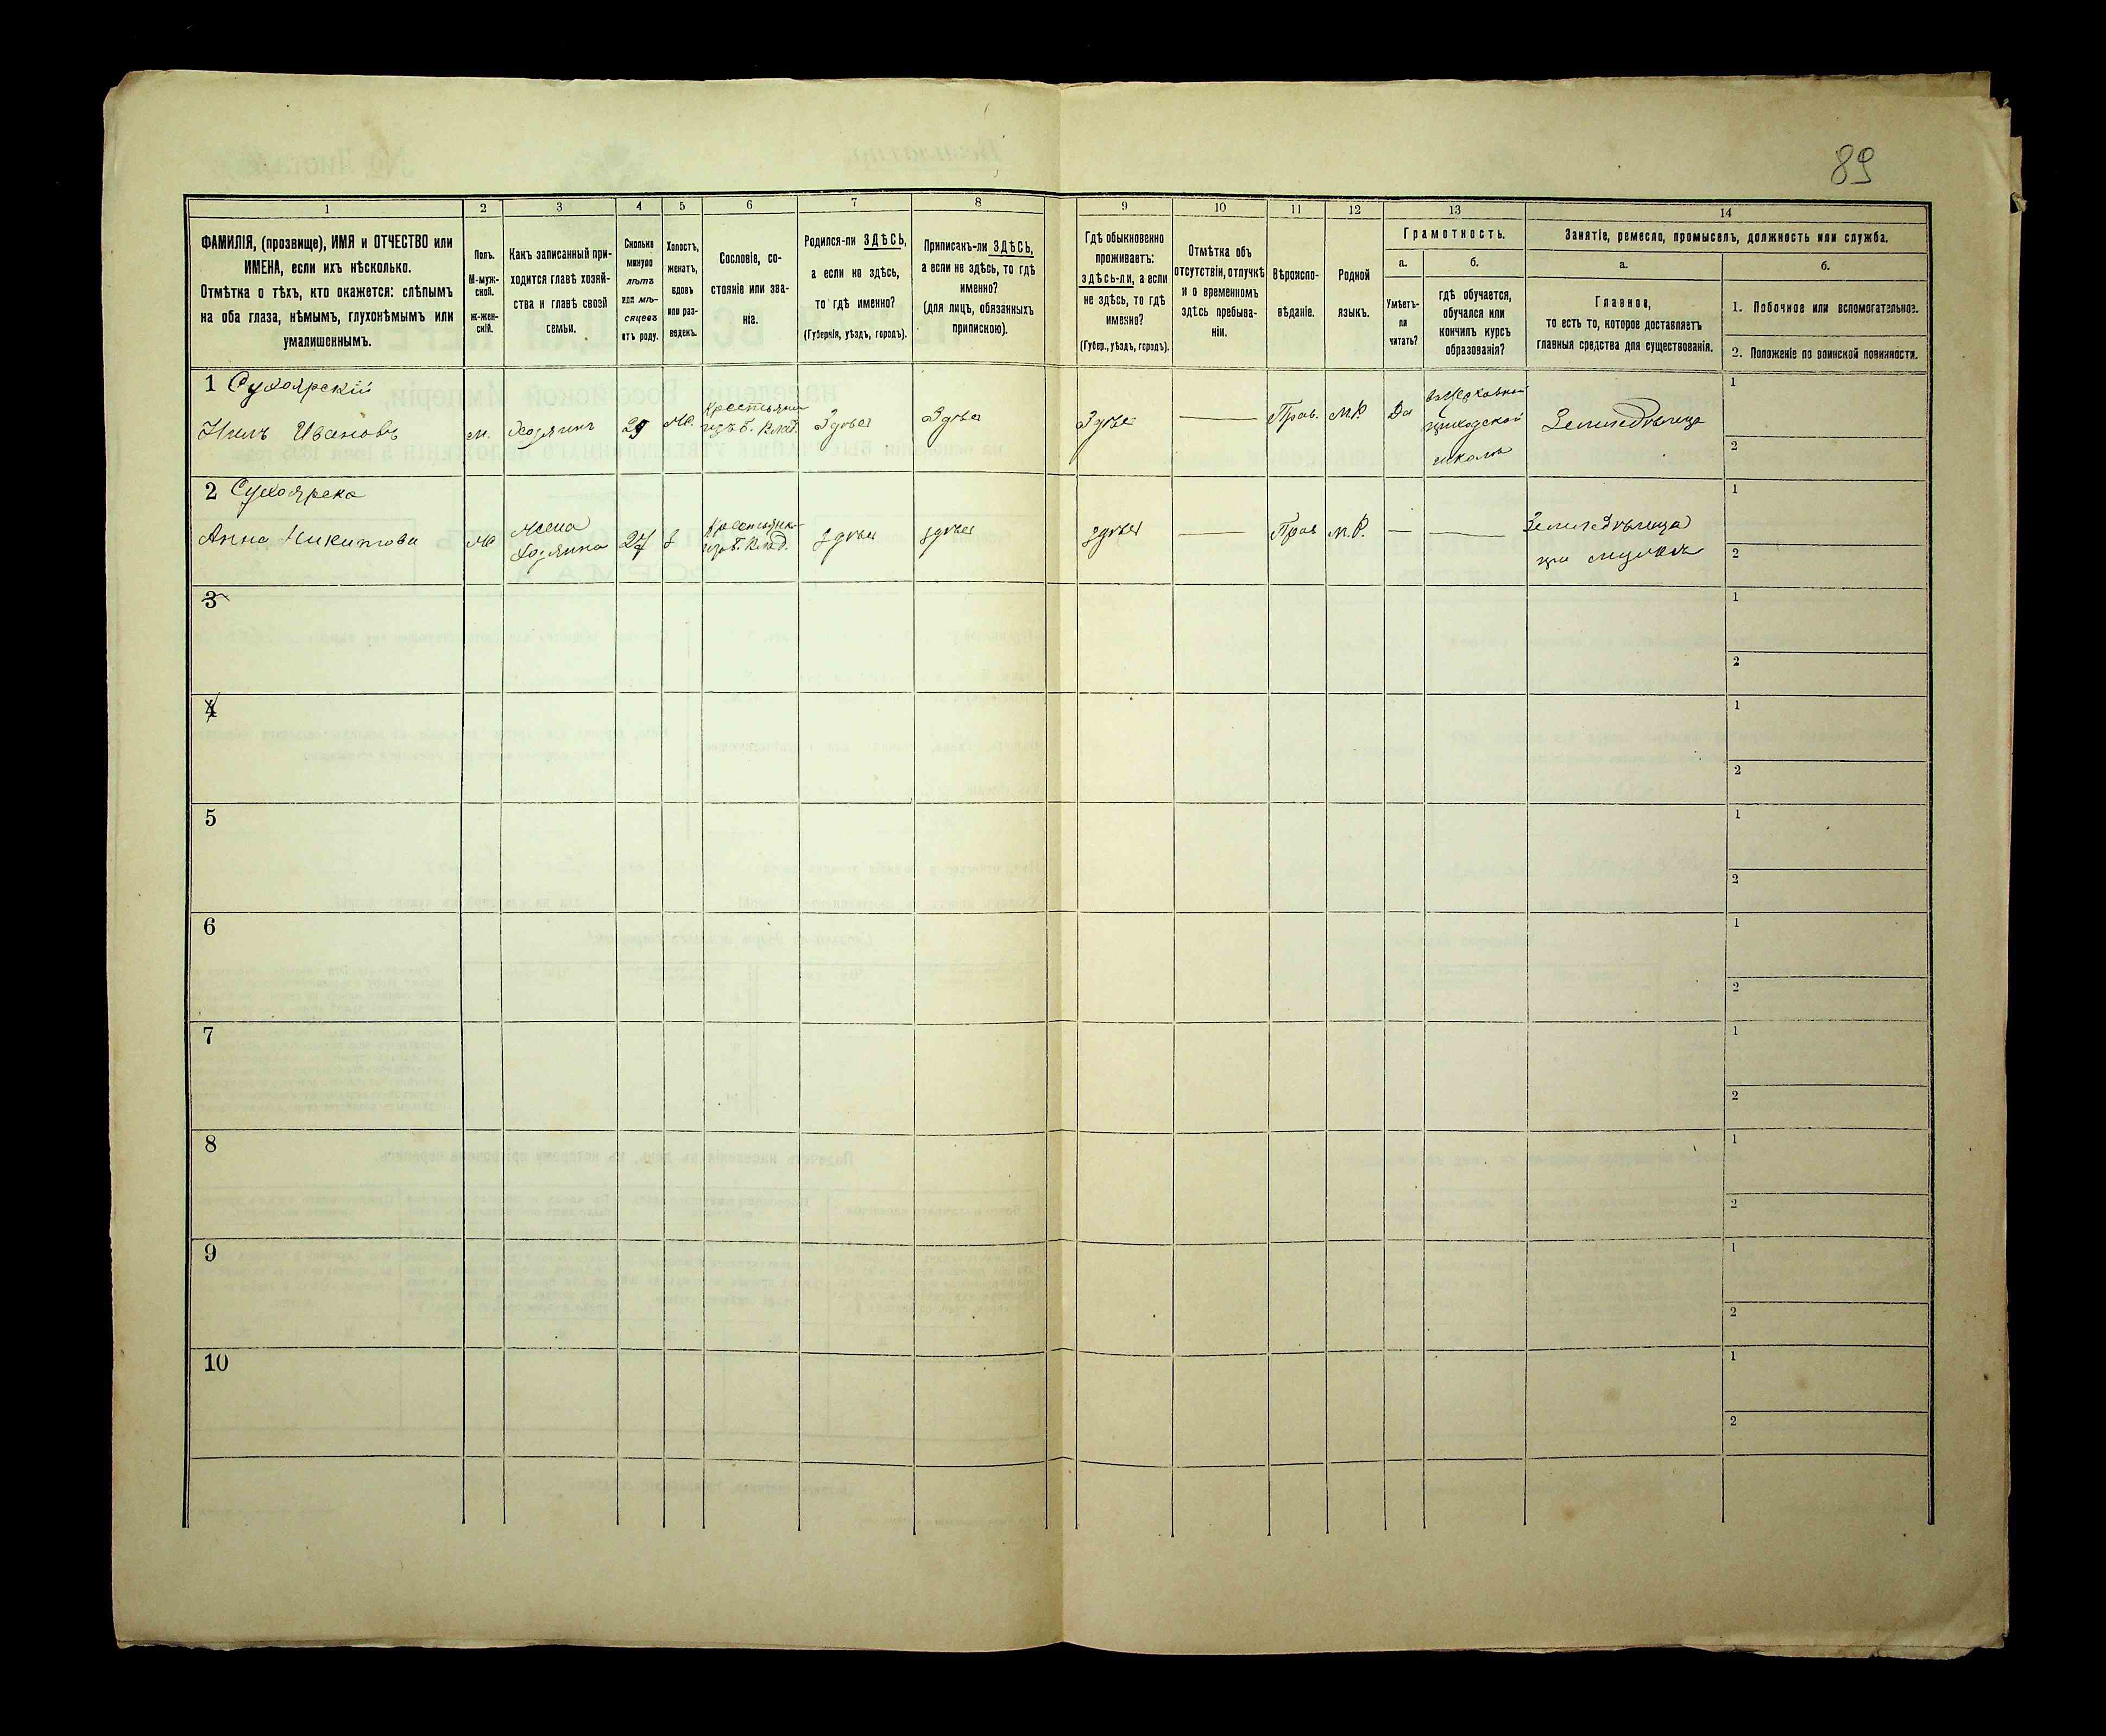 89
1
2
3
4
5
6
7
8
9
10
11
12
13
14
ФАМИЛІЯ, (прозвище), ИМЯ и ОТЧЕСТВО или
ИМЕНА, если ихъ нѣсколько.
Отмѣтка о тѣхъ, кто окажется: слѣпымъ
на оба глаза, нѣмымъ, глухонѣмымъ или
умалишеннымъ.
Полъ.
М-муж-
ской.
ж-жен-
скій.
Какъ записанный при-
ходится главѣ хозяй-
ства и главѣ своей
семьи.
Сколько
минуло
лѣтъ
или мѣ-
сяцевъ
отъ роду.
Холостъ,
женатъ,
вдовъ
или раз-
веденъ.
Сословіе, со-
стояніе или зва-
ніе.
Родился-ли ЗДѢСЬ,
а если не здѣсь,
то гдѣ именно?
(Губернія, уѣздъ, городъ).
Приписанъ-ли ЗДѢСЬ,
а если не здѣсь, то гдѣ
именно?
(для лицъ, обязанныхъ
припискою).
Гдѣ обыкновенно
проживаетъ:
здѣсь-ли, а если
не здѣсь, то гдѣ
именно?
(Губер., уѣздъ, городъ).
Отмѣтка объ
отсутствіи, отлучкѣ
и о временномъ
здѣсь пребыва-
ніи.
Вѣроиспо-
вѣданіе.
Родной
языкъ.
Грамотность.
а.
Умѣетъ-
ли
читать?
б.
гдѣ обучается,
обучался или
кончилъ курсъ
образованія?
Занятіе, ремесло, промыселъ, должность или служба.
а.
Главное,
то есть то, которое доставляетъ
главныя средства для существованія.
б.
1. Побочное или вспомогательное.
2. Положеніе по воинской повинности.
1 Сухоярскій
Нилъ Ивановъ
м.
Хозяинъ
29
Ж.
Крестьянин
изъ б. влад.
Здѣсь
Здѣсь
Здѣсь
Прав.
М.Р.
Да
въ Церковно
приходской
школѣ
Земледѣлецъ
1
2
2 Сухоярска
Анна Никитова
Ж
Жена
хозяина
27
з
Крестьянка
изъ б. влад.
здѣсь
здѣсь
здѣсь
Прав
м.Р.
Земледѣлица
при мужѣ
1
2
3
1
2
4
1
2
5
1
2
6
1
2
7
1
2
8
1
2
9
1
2
10
1
2